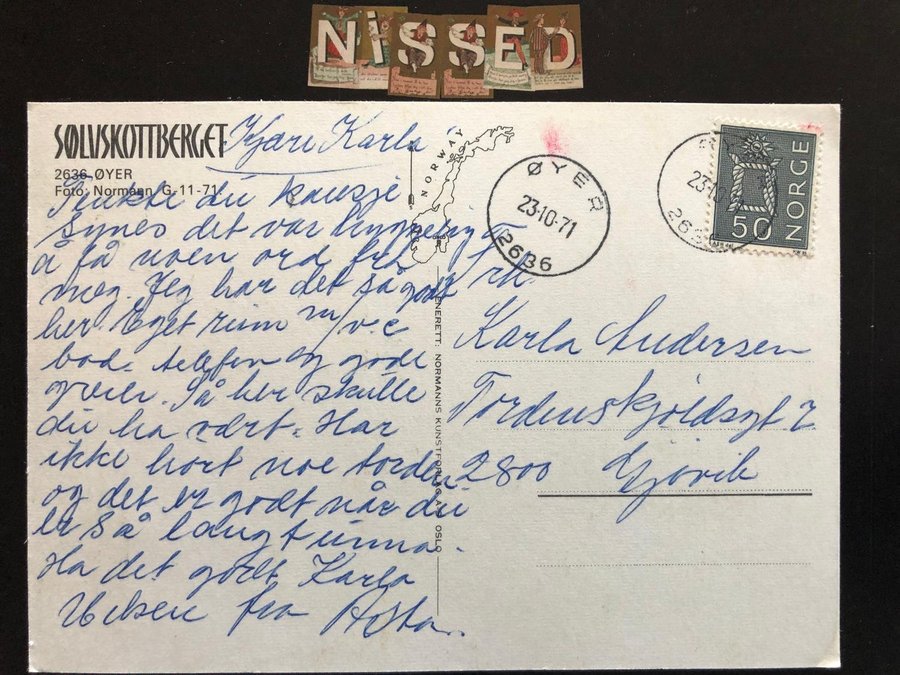 NiSSED
SØLVSKOTTBERGET
2636 ØYER
Foto: Normann G-11-71.
Kjære Karla
Tenkte du kansje
synes det var hyggelig
å få noen ord fra
meg. Jeg har det så godt
her. Eget rum m/v.c
bad. telefon og gode
greier. Så her skulle
du ha vært. Har
ikke hørt noe torden
og det er godt når du
er så langt unna.
Ha det godt Karla
Hilsen fra Asta.
NORWAY
ENERETT: NORMANNS KUNSTFORLAG A/S OSLO
ØYER
23-10-71
2636
23-10
NORGE
50
Frk.
Karla Andersen
Tordenskjoldsgt 2
2800 Gjøvik